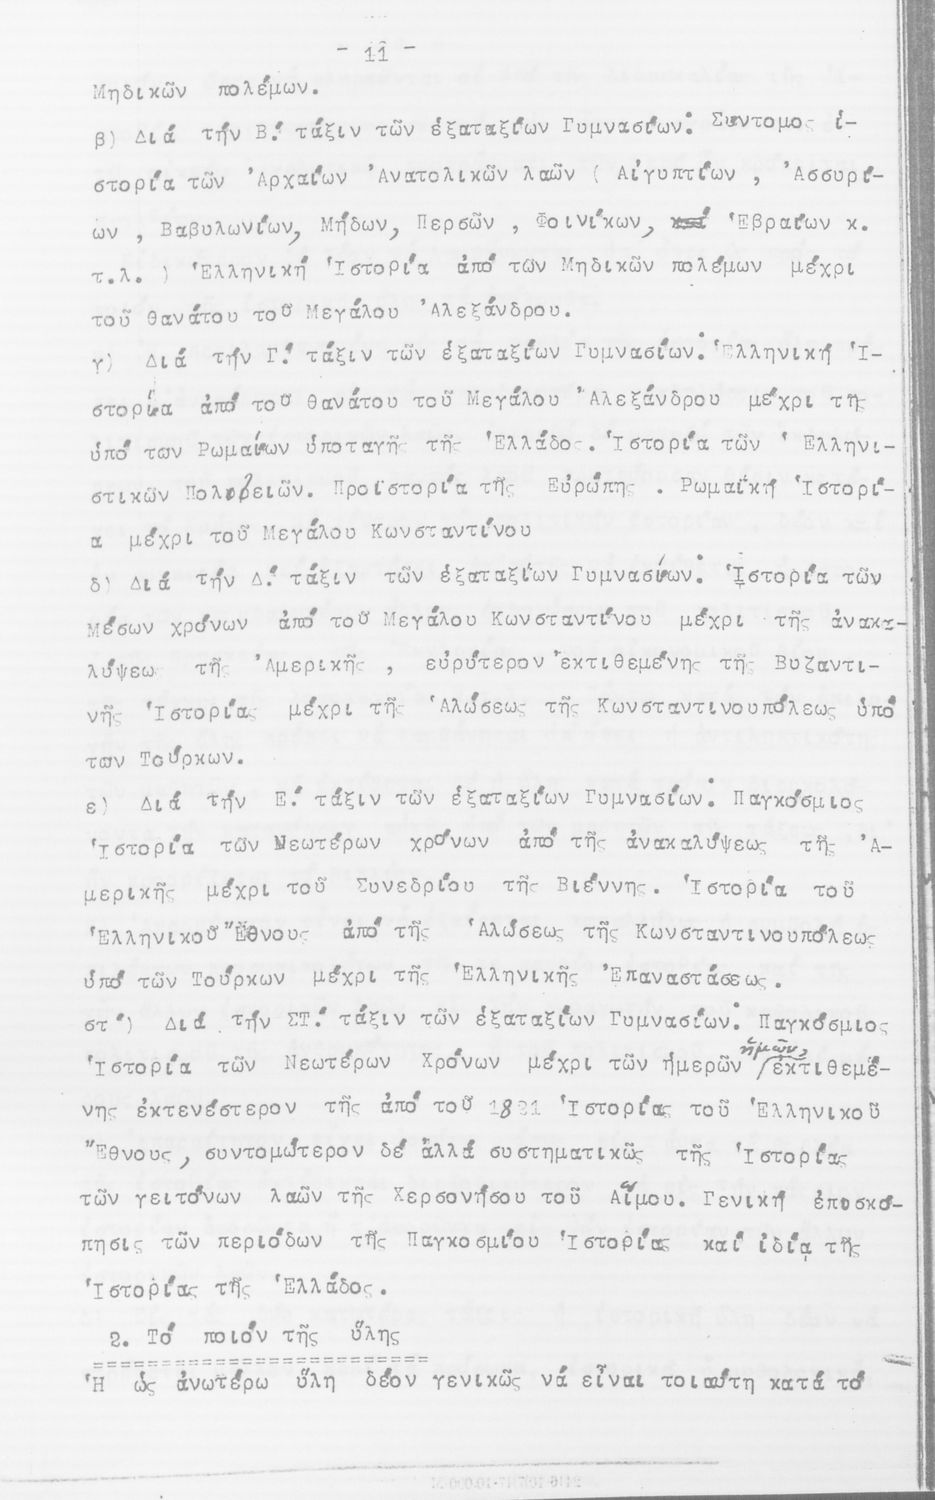 - 11 -
Μηδικῶν πολέμων.
β) Διά τήν Β.΄ τάξιν τῶν ἑξαταξίων Γυμνασίων: Σύντομος ἱ-
στορία τῶν Ἀρχαίων Ἀνατολικῶν λαῶν ( Αἰγυπτίων , Ἀσσυρί-
ων , Βαβυλωνίων, Μήδων, Περσῶν , Φοινίκων, Ἑβραίων κ.
τ.λ. ) Ἑλληνική Ἱστορία ἀπό τῶν Μηδικῶν πολέμων μέχρι
τοῦ θανάτου τοῦ Μεγάλου Ἀλεξάνδρου.
γ) Διά τήν Γ.΄ τάξιν τῶν ἑξαταξίων Γυμνασίων: Ἑλληνική Ἱ-
στορία ἀπό τοῦ θανάτου τοῦ Μεγάλου Ἀλεξάνδρου μέχρι τῆς
ὑπό των Ρωμαίων ὑποταγῆς τῆς Ἑλλάδος. Ἱστορία τῶν Ἑλληνι-
στικῶν Πολιτειῶν. Προϊστορία τῆς Εὐρώπης . Ρωμαϊκή Ἱστορί-
α μέχρι τοῦ Μεγάλου Κωνσταντίνου
δ) Διά τήν Δ.΄ τάξιν τῶν ἑξαταξίων Γυμνασίων: Ἱστορία τῶν
Μέσων χρόνων ἀπό τοῦ Μεγάλου Κωνσταντίνου μέχρι τῆς ἀνακα-
λύψεως τῆς Ἀμερικῆς , εὐρύτερον ἐκτιθεμένης τῆς Βυζαντι-
νῆς Ἱστορίας μέχρι τῆς Ἁλώσεως τῆς Κωνσταντινουπόλεως ὑπό
των Τούρκων.
ε) Διά τήν Ε.΄ τάξιν τῶν ἑξαταξίων Γυμνασίων: Παγκόσμιος
Ἱστορία τῶν Νεωτέρων χρόνων ἀπό τῆς ἀνακαλύψεως τῆς Ἀ-
μερικῆς μέχρι τοῦ Συνεδρίου τῆς Βιέννης. Ἱστορία τοῦ
Ἑλληνικοῦ Ἔθνους ἀπό τῆς Ἁλώσεως τῆς Κωνσταντινουπόλεως
ὑπό τῶν Τούρκων μέχρι τῆς Ἑλληνικῆς Ἐπαναστάσεως.
στ΄) Διά τήν ΣΤ.΄ τάξιν τῶν ἑξαταξίων Γυμνασίων: Παγκόσμιος
Ἱστορία τῶν Νεωτέρων Χρόνων μέχρι τῶν ἡμερῶν ἡμῶν, ἐκτιθεμέ-
νης ἐκτενέστερον τῆς ἀπό τοῦ 1821 Ἱστορίας τοῦ Ἑλληνικοῦ
Ἔθνους, συντομώτερον δέ ἀλλά συστηματικῶς τῆς Ἱστορίας
τῶν γειτόνων λαῶν τῆς Χερσονήσου τοῦ Αἵμου. Γενική ἐπισκό-
πησις τῶν περιόδων τῆς Παγκοσμίου Ἱστορίας καί ἰδίᾳ τῆς
Ἱστορίας τῆς Ἑλλάδος.
2. Τό ποιόν τῆς ὕλης
==============================
Ἡ ὡς ἀνωτέρω ὕλη δέον γενικῶς νά εἶναι τοιαύτη κατά τό